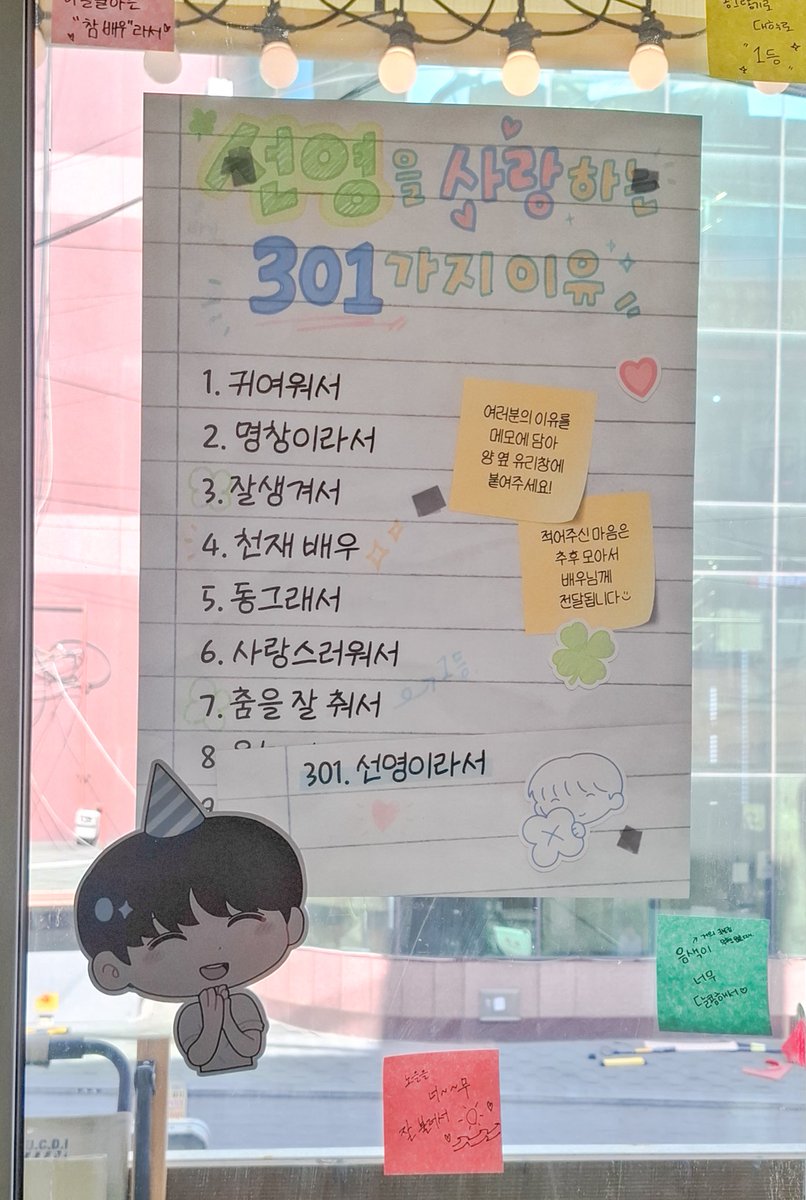 "참 배우"라서
"1등"
선영을 사랑하는
301가지 이유
1. 귀여워서
2. 명창이라서
3. 잘생겨서
4. 천재 배우
5. 동그래서
6. 사랑스러워서
7. 춤을 잘 춰서
8
301. 선영이라서
여러분의 이유를
메모에 담아
양 옆 유리창에
붙여주세요!
적어주신 마음은
추후 모아서
배우님께
전달됩니다
음색이
너무
달콤해서
노을을
너~~무
잘 불러서
U.C.D.I